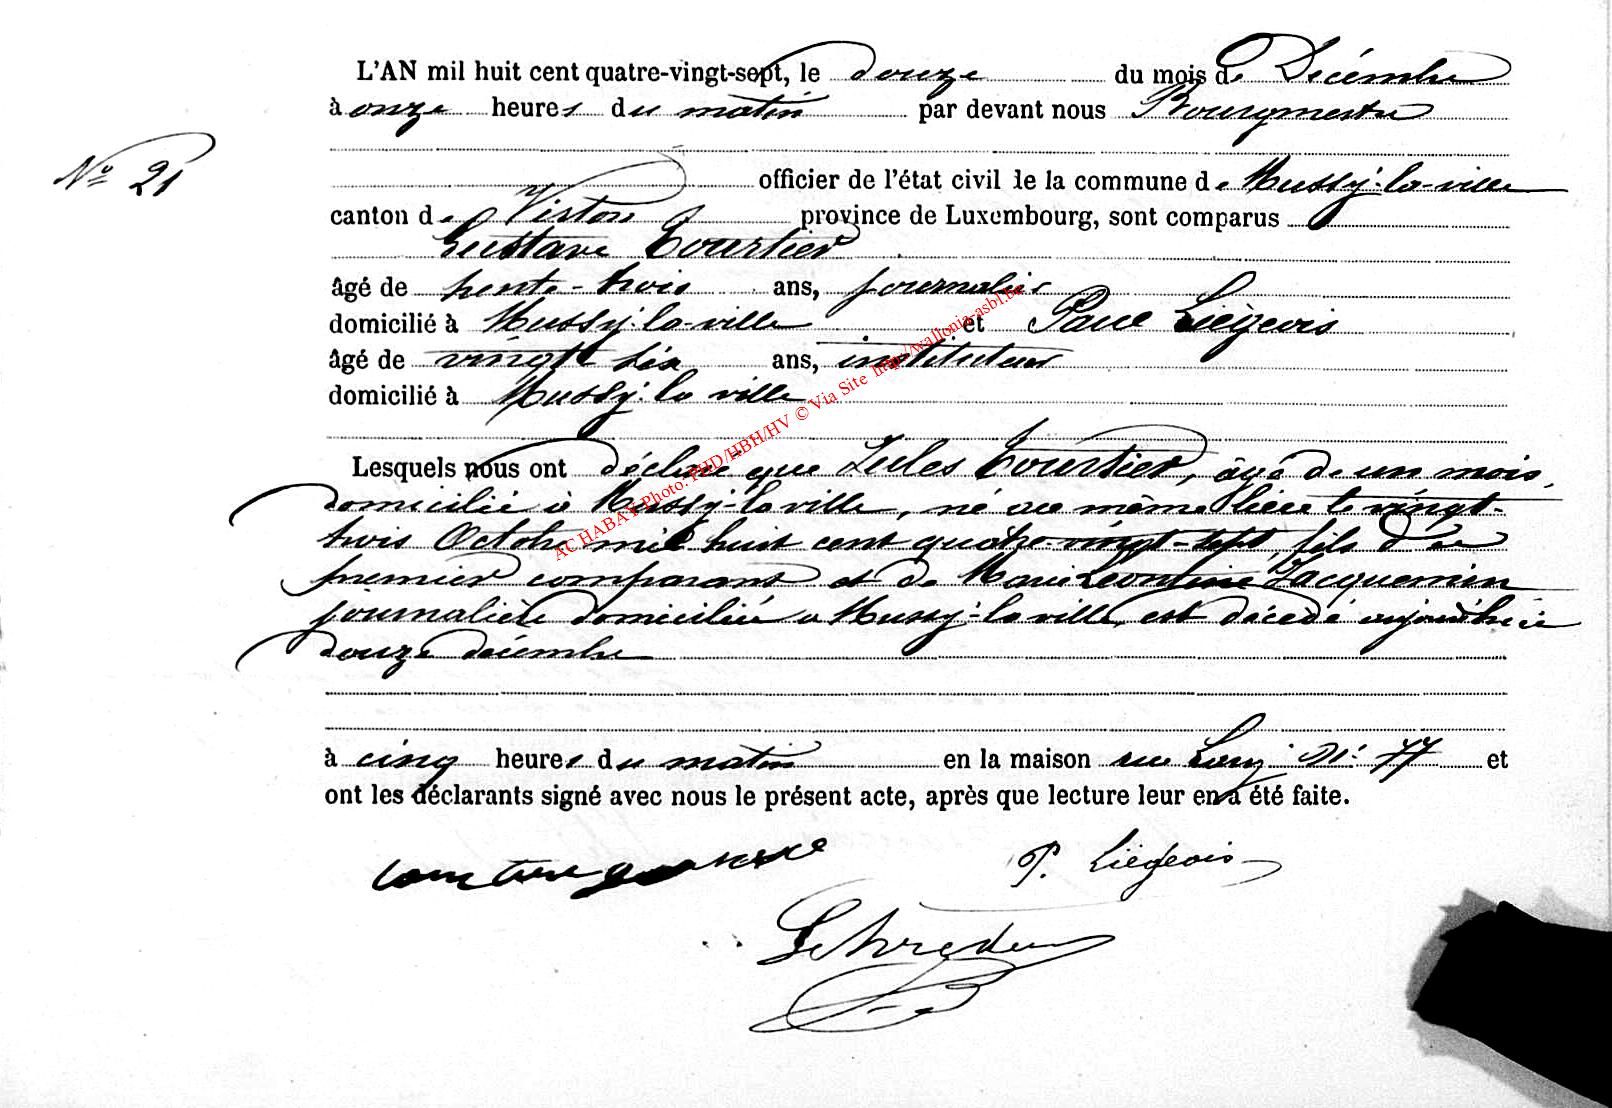 L'AN mil huit cent quatre-vingt-sept, le douze du mois de Décembre
à onze heures du matin par devant nous Bourgmestre
N° 21
officier de l'état civil de la commune de Mussy-la-ville
canton de Virton province de Luxembourg, sont comparus
Gustave Courtier
âgé de trente-trois ans, journalier
domicilié à Mussy-la-ville et Paul Liégeois
âgé de vingt six ans, instituteur
domicilié à Mussy-la ville
Lesquels nous ont déclaré que Jules Courtier, âgé de un mois,
domicilié à Mussy-la ville, né au même lieu le vingt-
trois Octobre mil huit cent quatre-vingt-sept, fils du
premier comparant et de Marie Leontine Jacquemin
journalière domiciliée à Mussy-la ville, est décédé aujourd'hui
douze décembre
à cinq heures du matin en la maison rue N° 77 et
ont les déclarants signé avec nous le présent acte, après que lecture leur en a été faite.
P. Liégeois
AC HABAY Photo: PHD/HBH/HV © Via Site http://wallonia-asbl.be